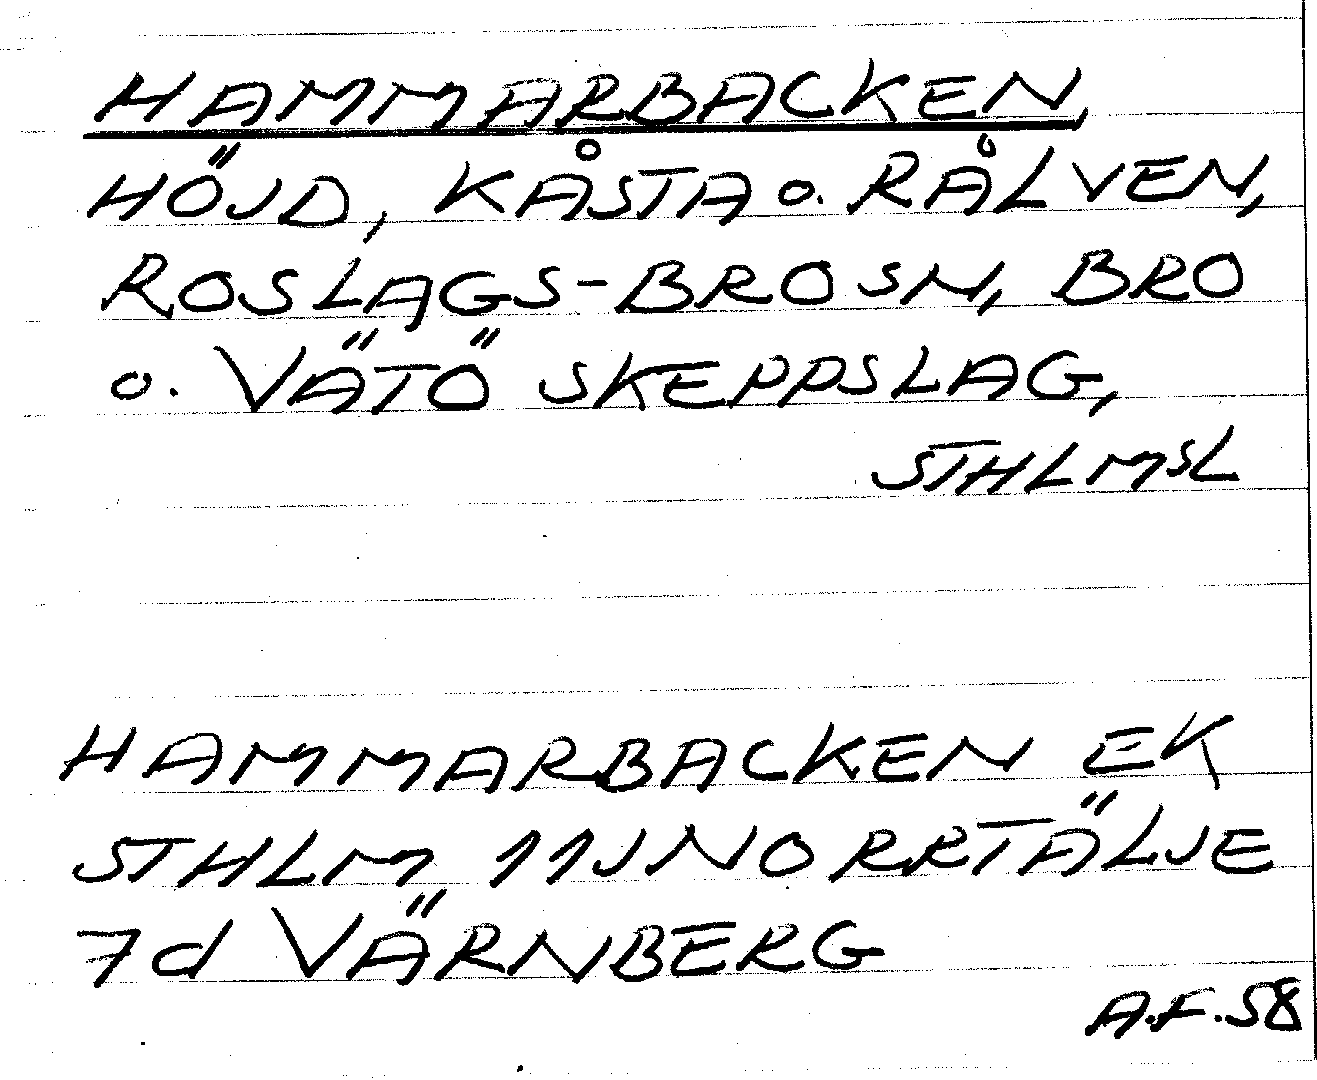 HAMMARBACKEN,
HÖJD, KÅSTA o. RÅLVEN,
ROSLAGS-BROSN, BRO
o. VÄTÖ SKEPPSLAG,
STHLMSL
HAMMARBACKEN EK
STHLM 11J NORRTÄLJE
7d VÄRNBERG
A.F. 58